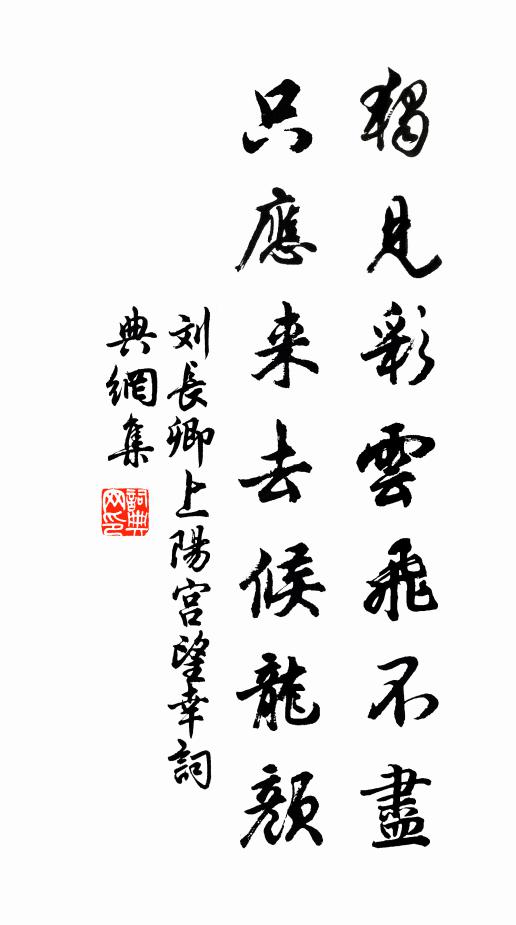 獨見彩雲飛不盡
只應来去候龍顔
刘長卿上陽宫望幸詞
典網集
詞典网印